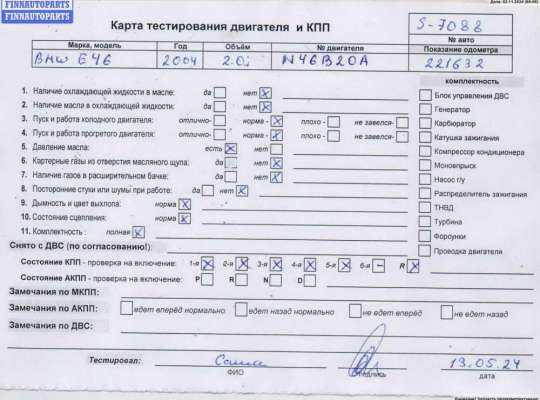 FINNAUTOPARTS
FINNAUTOPARTS
Карта тестирования двигателя и КПП
S-7088
№ авто
Марка, модель Год Объём № двигателя Показание одометра
BMW E46 2004 2.0i N46B20A 221632
комплектность
1. Наличие охлаждающей жидкости в масле: да нет X
2. Наличие масла в охлаждающей жидкости: да нет X
3. Пуск и работа холодного двигателя: отлично- норма - X плохо - не завелся-
4. Пуск и работа прогретого двигателя: отлично- норма - X плохо - не завелся-
5. Давление масла: есть X нет
6. Картерные газы из отверстия масляного щупа: да нет X
7. Наличие газов в расширительном бачке: да нет X
8. Посторонние стуки или шумы при работе: да нет X
9. Дымность и цвет выхлопа: норма X
10. Состояние сцепления: норма X
11. Комплектность : полная X
Блок управления ДВС
Генератор
Карбюратор
Катушка зажигания
Компрессор кондиционера
Моновпрыск
Насос г/у
Распределитель зажигания
ТНВД
Турбина
Форсунки
Проводка двигателя
Снято с ДВС (по согласованию!):
Состояние КПП - проверка на включение: 1-я X 2-я X 3-я X 4-я X 5-я X 6-я – R X
Состояние АКПП - проверка на включение: P R N D
Замечания по МКПП:
Замечания по АКПП: едет вперёд нормально едет назад нормально не едет вперёд не едет назад
Замечания по ДВС:
Тестировал: 13.05.24
ФИО подпись дата